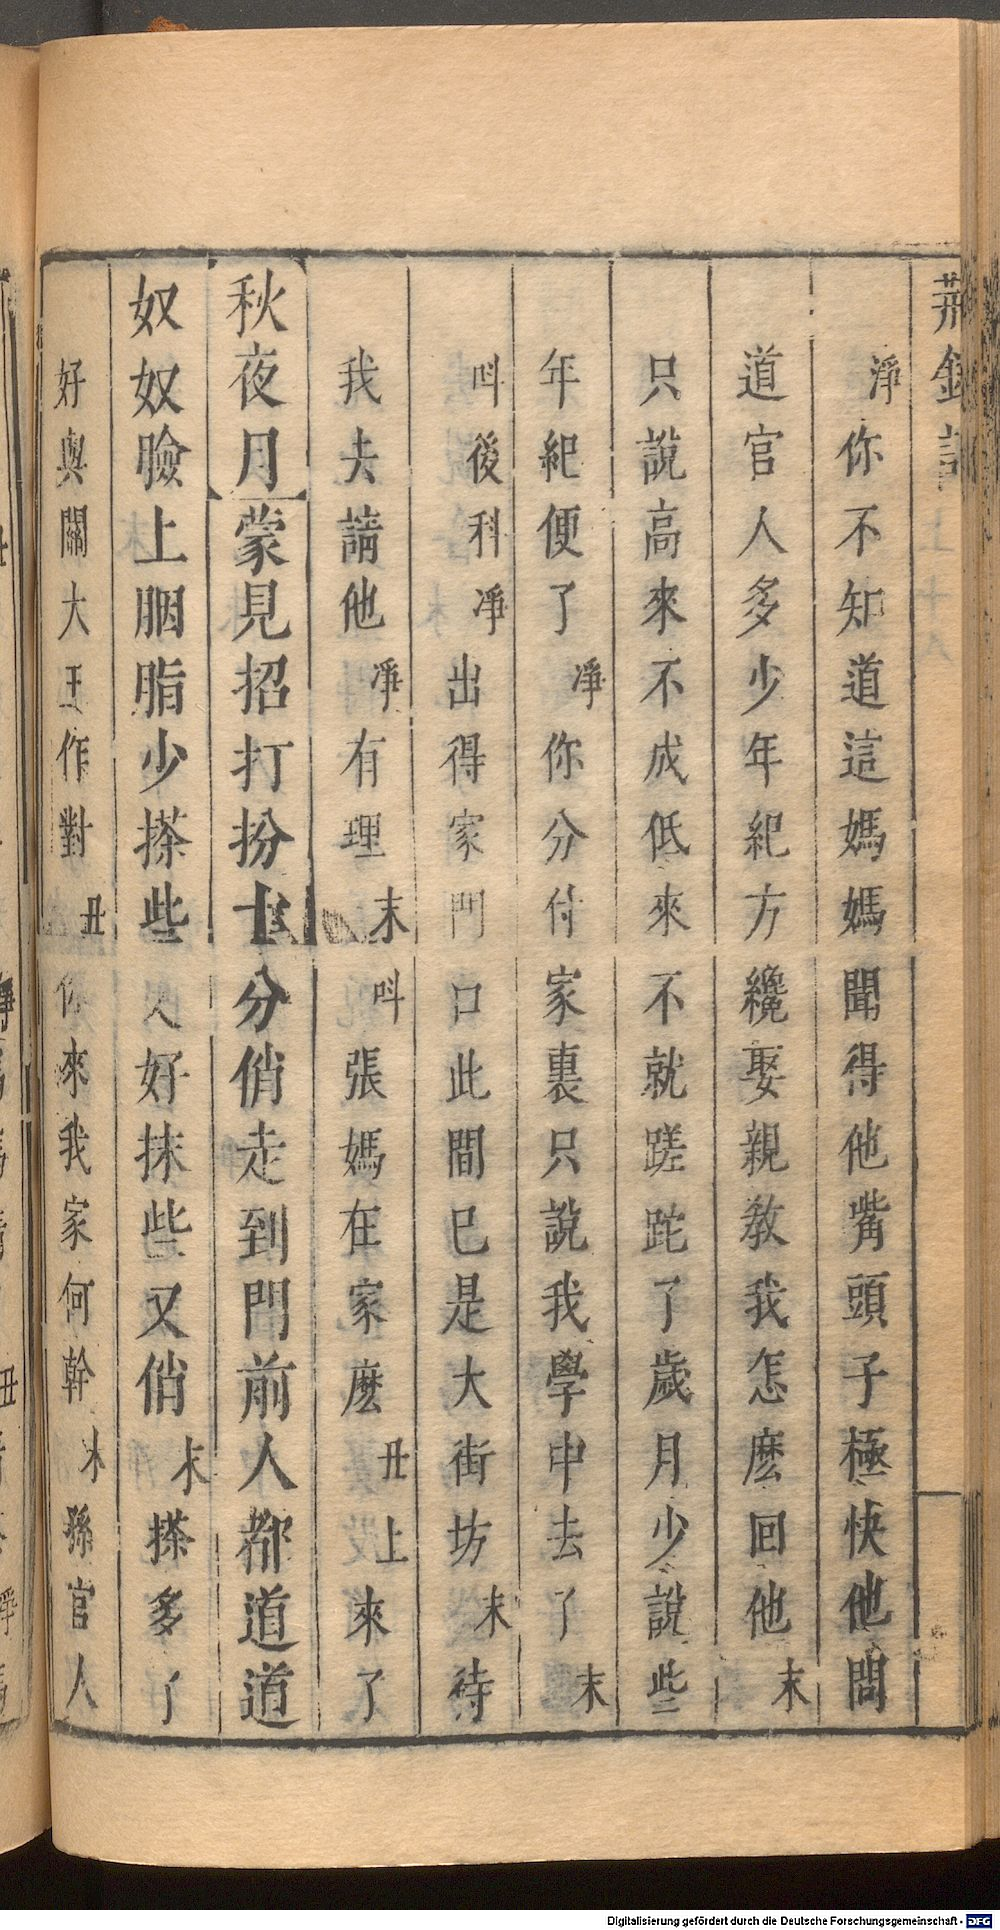 荊釵記
淨你不知道這媽媽聞得他嘴頭子極快他問
道官人多少年紀方纔娶親教我怎麽回他末
只說高來不成低來不就蹉跎了歲月少說些
年紀便了淨你分付家裏只說我學中去了末
叫後科淨出得家門口此間已是大街坊末待
我去請他淨有理末叫張媽在家麽丑上來了
秋夜月蒙見招打扮十分俏走到門前人都道道
奴奴臉上胭脂少搽些又好抹些又俏末搽多了
好與關大王作對丑你來我家何幹末孫官人
Digitalisierung gefördert durch die Deutsche Forschungsgemeinschaft - DFG